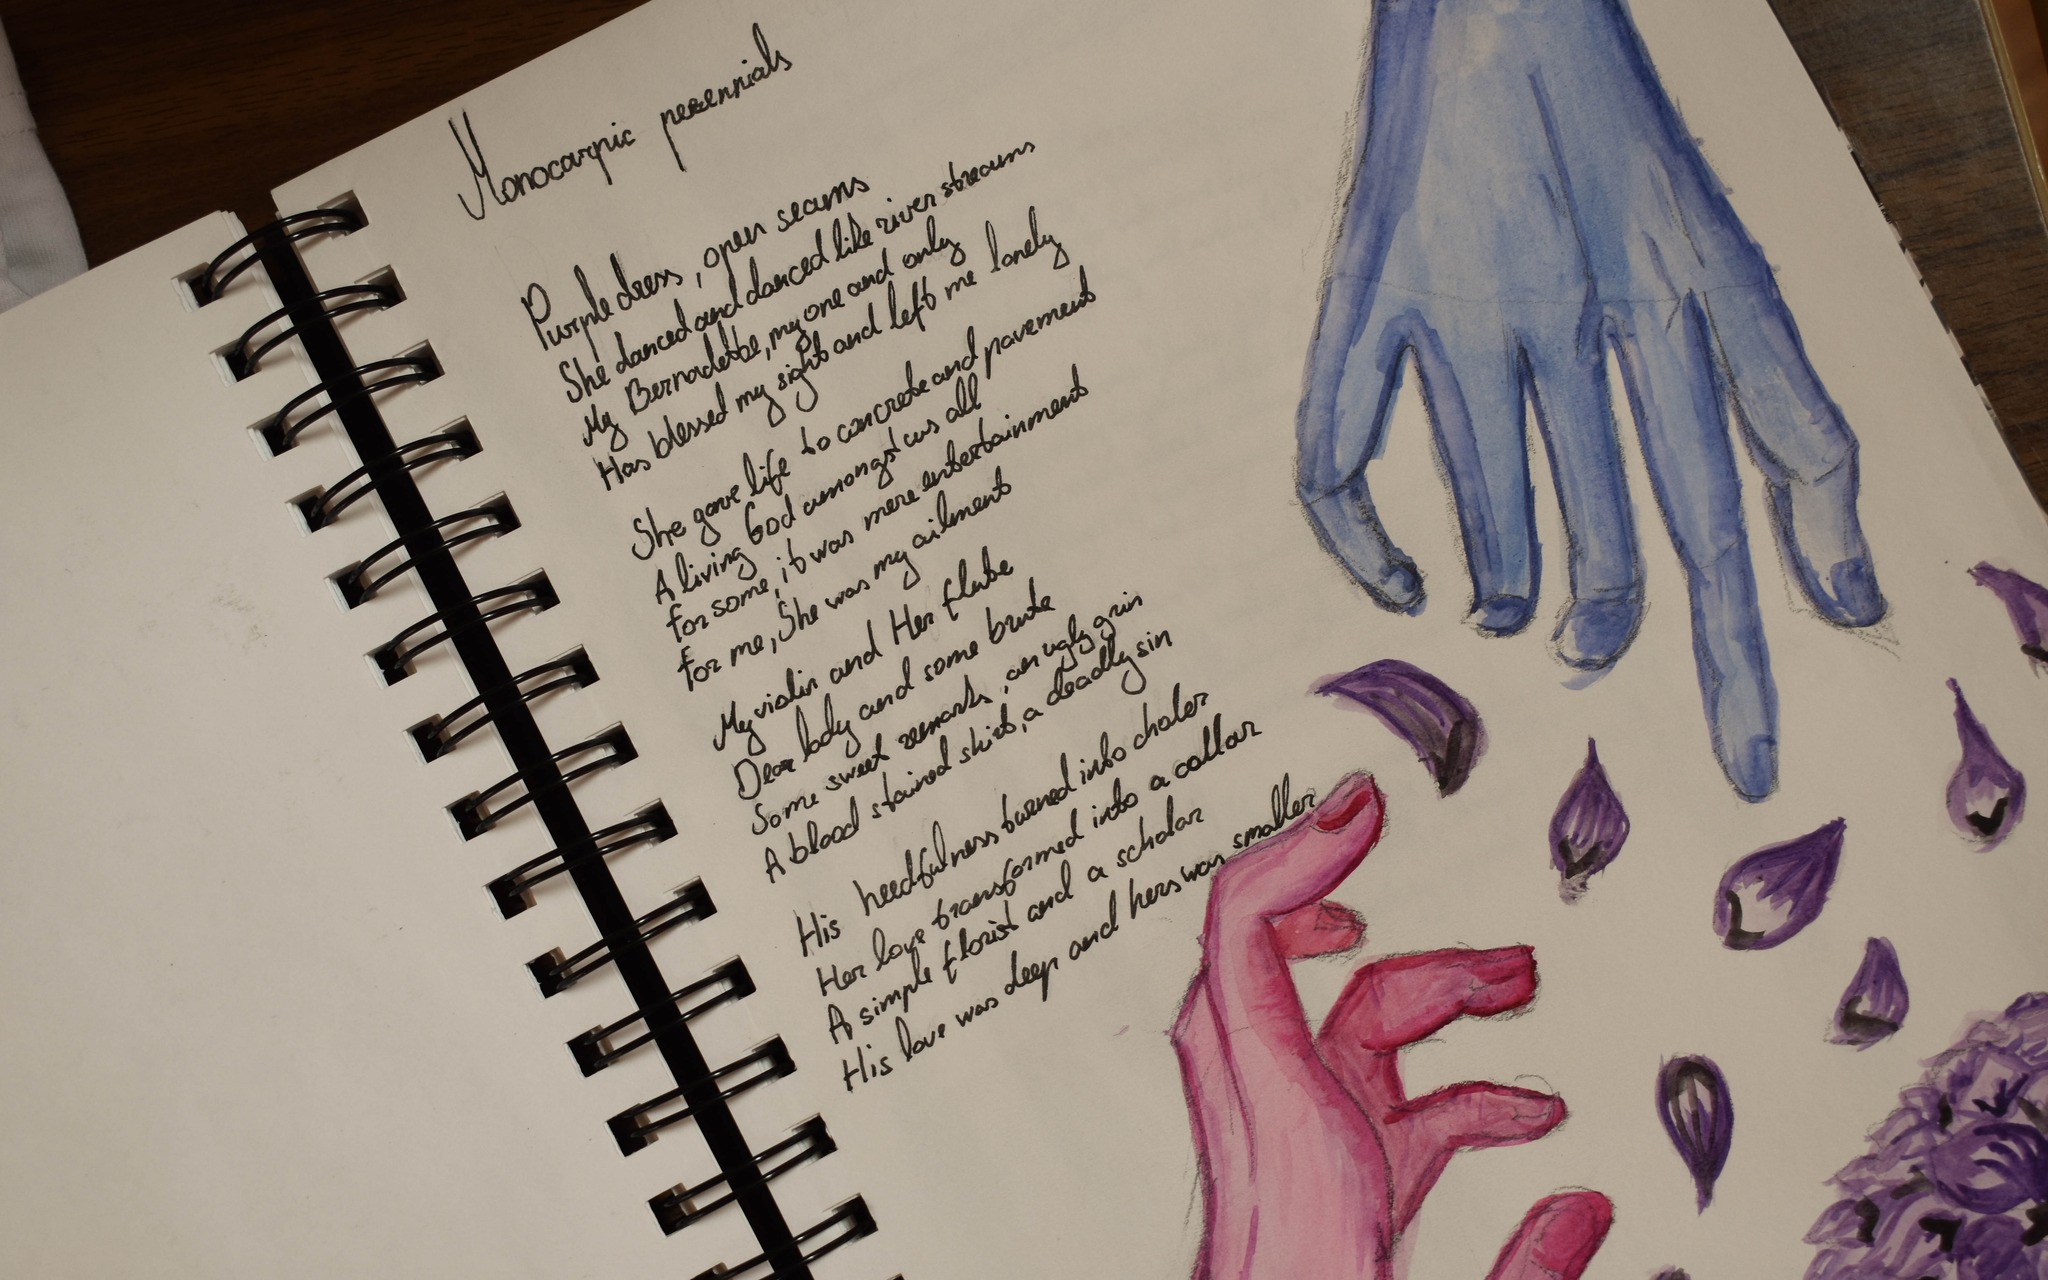 Monocarpic perennials
Purple dress, open seams
She danced and danced like river streams
My Bernadette, my one and only
Has blessed my sight and left me lonely
She gave life to concrete and pavement
A living God amongst us all
For some, it was mere entertainment
For me, She was my ailment
My violin and Her flute
Dear lady and some brute
Some sweet remarks, an ugly grin
A blood stained shirt, a deadly sin
His heedfulness turned into choler
Her love transformed into a collar
A simple florist and a scholar
His love was deep and hers was smaller